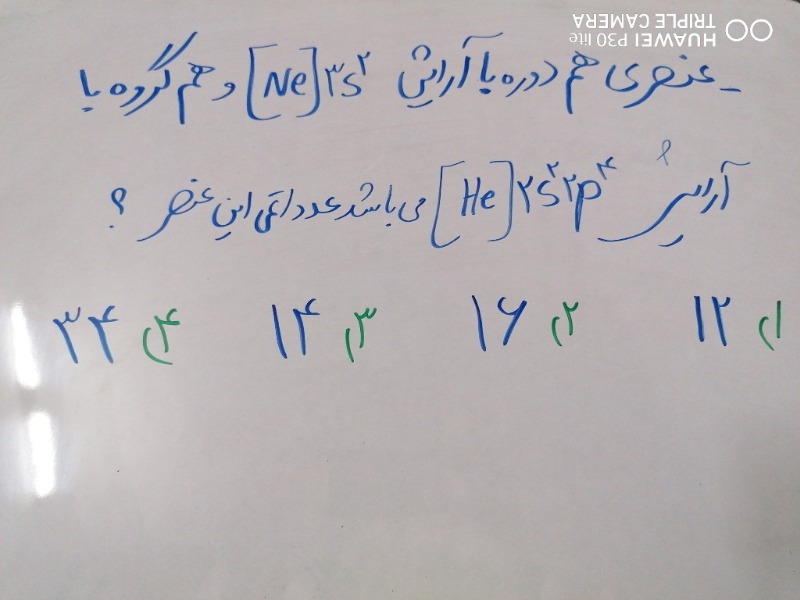 HUAWEI P30 lite
TRIPLE CAMERA
ـ عنصری هم دوره با آرایش [Ne]۳s² و هم گروه با
آرایش [He]۲s²۲p⁴ می باشد عدد اتمی این عنصر ؟
۱) ۱۲ ۲) ۱۶ ۳) ۱۴ ۴) ۳۴